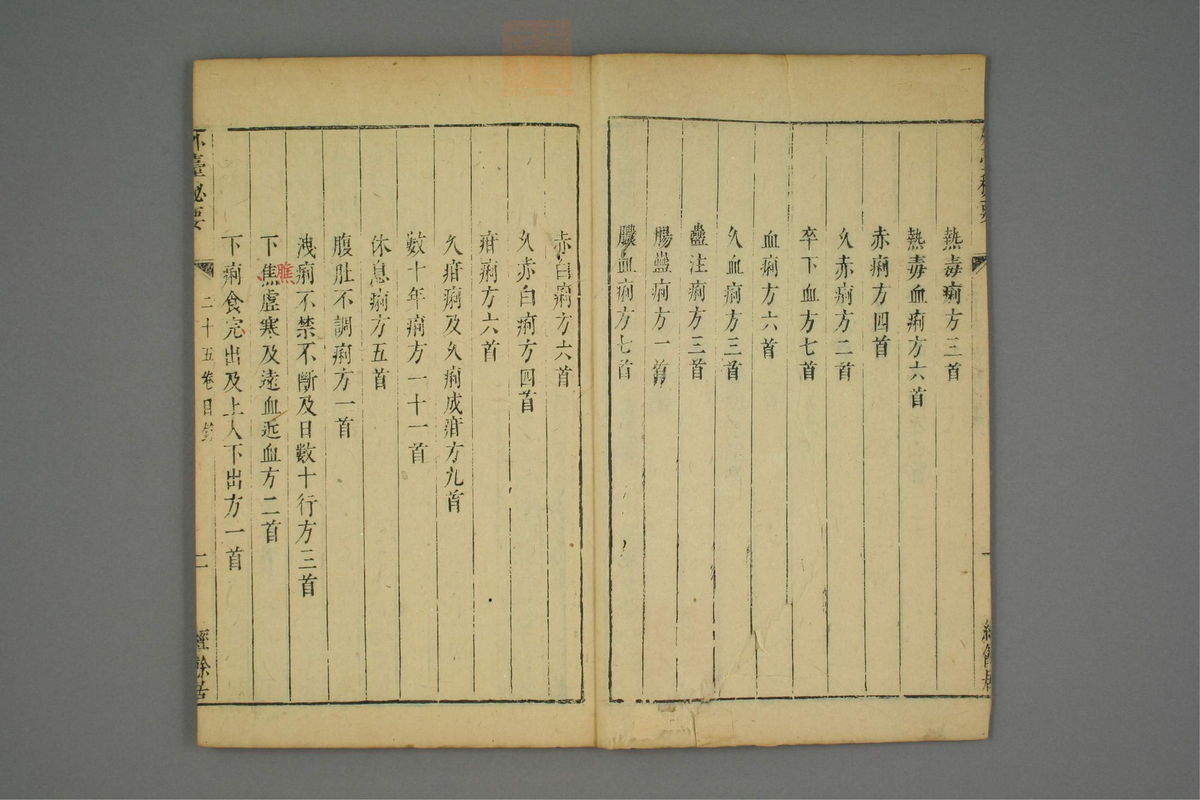 熱毒痢方三首
熱毒血痢方六首
赤痢方四首
久赤痢方二首
卒下血方七首
血痢方六首
久血痢方三首
蠱注痢方三首
腸蠱痢方一首
膿血痢方七首
赤白痢方六首
久赤白痢方四首
疳痢方六首
久疳痢及久痢成疳方九首
數十年痢方一十一首
休息痢方五首
腹肚不調痢方一首
洩痢不禁不斷及日數十行方三首
下焦虛寒及遠血近血方二首
瞧
下痢食完出及上入下出方一首
外臺秘要
二十五卷目錄
二
經餘居